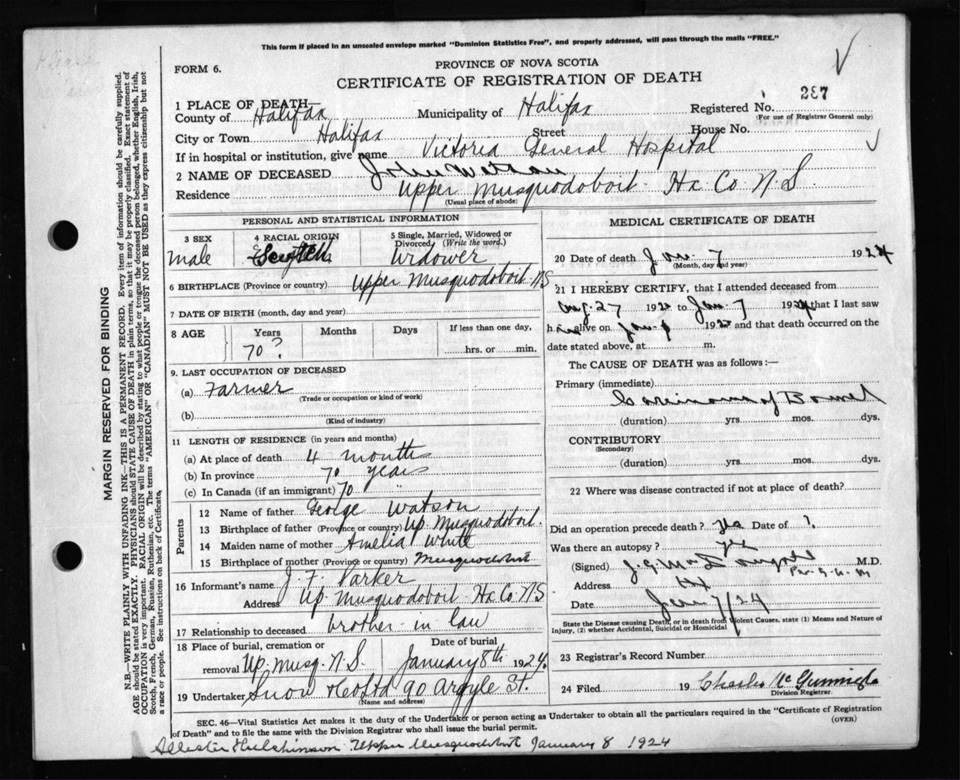 This form if placed in an unsealed envelope marked "Dominion Statistics Free", and properly addressed, will pass through the mails "FREE."
FORM 6.
PROVINCE OF NOVA SCOTIA
CERTIFICATE OF REGISTRATION OF DEATH
1 PLACE OF DEATH—
County of Halifax Municipality of Halifax Registered No. 287
(For use of Registrar General only)
City or Town Halifax Street House No.
If in hospital or institution, give name Victoria General Hospital
2 NAME OF DECEASED John Watson
Residence Upper Musquodoboit Hx Co N S
(Usual place of abode)
PERSONAL AND STATISTICAL INFORMATION
3 SEX 4 RACIAL ORIGIN 5 Single, Married, Widowed or Divorced, (Write the word.)
male Widower
6 BIRTHPLACE (Province or country) Upper Musquodoboit NS
7 DATE OF BIRTH (month, day and year)
8 AGE Years Months Days If less than one day
70? hrs. or min.
9. LAST OCCUPATION OF DECEASED
(a) Farmer
(Trade or occupation or kind of work)
(b)
(Kind of industry)
11 LENGTH OF RESIDENCE (in years and months)
(a) At place of death 4 months
(b) In province 70 years
(c) In Canada (if an immigrant) 70 "
Parents
12 Name of father George Watson
13 Birthplace of father (Province or country) Up. Musquodoboit.
14 Maiden name of mother Amelia White
15 Birthplace of mother (Province or country) Musquodoboit
16 Informant's name J. F. Parker
Address Up. Musquodoboit Hx Co. NS
17 Relationship to deceased brother in law
18 Place of burial, cremation or removal Up. Musq. N.S. Date of burial January 8th 1924
19 Undertaker Snow & Co Ltd 90 Argyle St.
(Name and address)
MEDICAL CERTIFICATE OF DEATH
20 Date of death Jan. 7 1924
(Month, day and year)
21 I HEREBY CERTIFY, that I attended deceased from
Aug. 27 19 to Jan. 7 1924 that I last saw
him alive on Jan. 19 and that death occurred on the
date stated above, at m.
The CAUSE OF DEATH was as follows:—
Primary (immediate)
Carcinoma of Bowel
(duration) yrs mos. dys.
CONTRIBUTORY
(Secondary)
(duration) yrs. mos. dys.
22 Where was disease contracted if not at place of death?
Did an operation precede death? yes Date of ?
Was there an autopsy? yes
(Signed) M.D.
Address Hx
Date Jan 7/24
State the Disease causing Death, or in death from Violent Causes, state (1) Means and Nature of Injury, (2) whether Accidental, Suicidal or Homicidal
23 Registrar's Record Number
24 Filed 19 Charles
Division Registrar.
SEC. 46—Vital Statistics Act makes it the duty of the Undertaker or person acting as Undertaker to obtain all the particulars required in the "Certificate of Registration of Death" and to file the same with the Division Registrar who shall issue the burial permit. (OVER)
Hutchinson Upper Musquodoboit January 8 1924
MARGIN RESERVED FOR BINDING
N.B.—WRITE PLAINLY WITH UNFADING INK—THIS IS A PERMANENT RECORD. Every item of information should be carefully supplied.
AGE should be stated EXACTLY. PHYSICIANS should STATE CAUSE OF DEATH in plain terms, so that it may be properly classified. Exact statement of
OCCUPATION is very important. RACIAL ORIGIN will be described by stating to what people or tongue the deceased person belonged, whether English, Irish,
Scotch, French, German, Russian, Ruthenian, etc. The terms "AMERICAN" or "CANADIAN" MUST NOT BE USED as they express citizenship but not
a race or people. See instructions on back of Certificate.